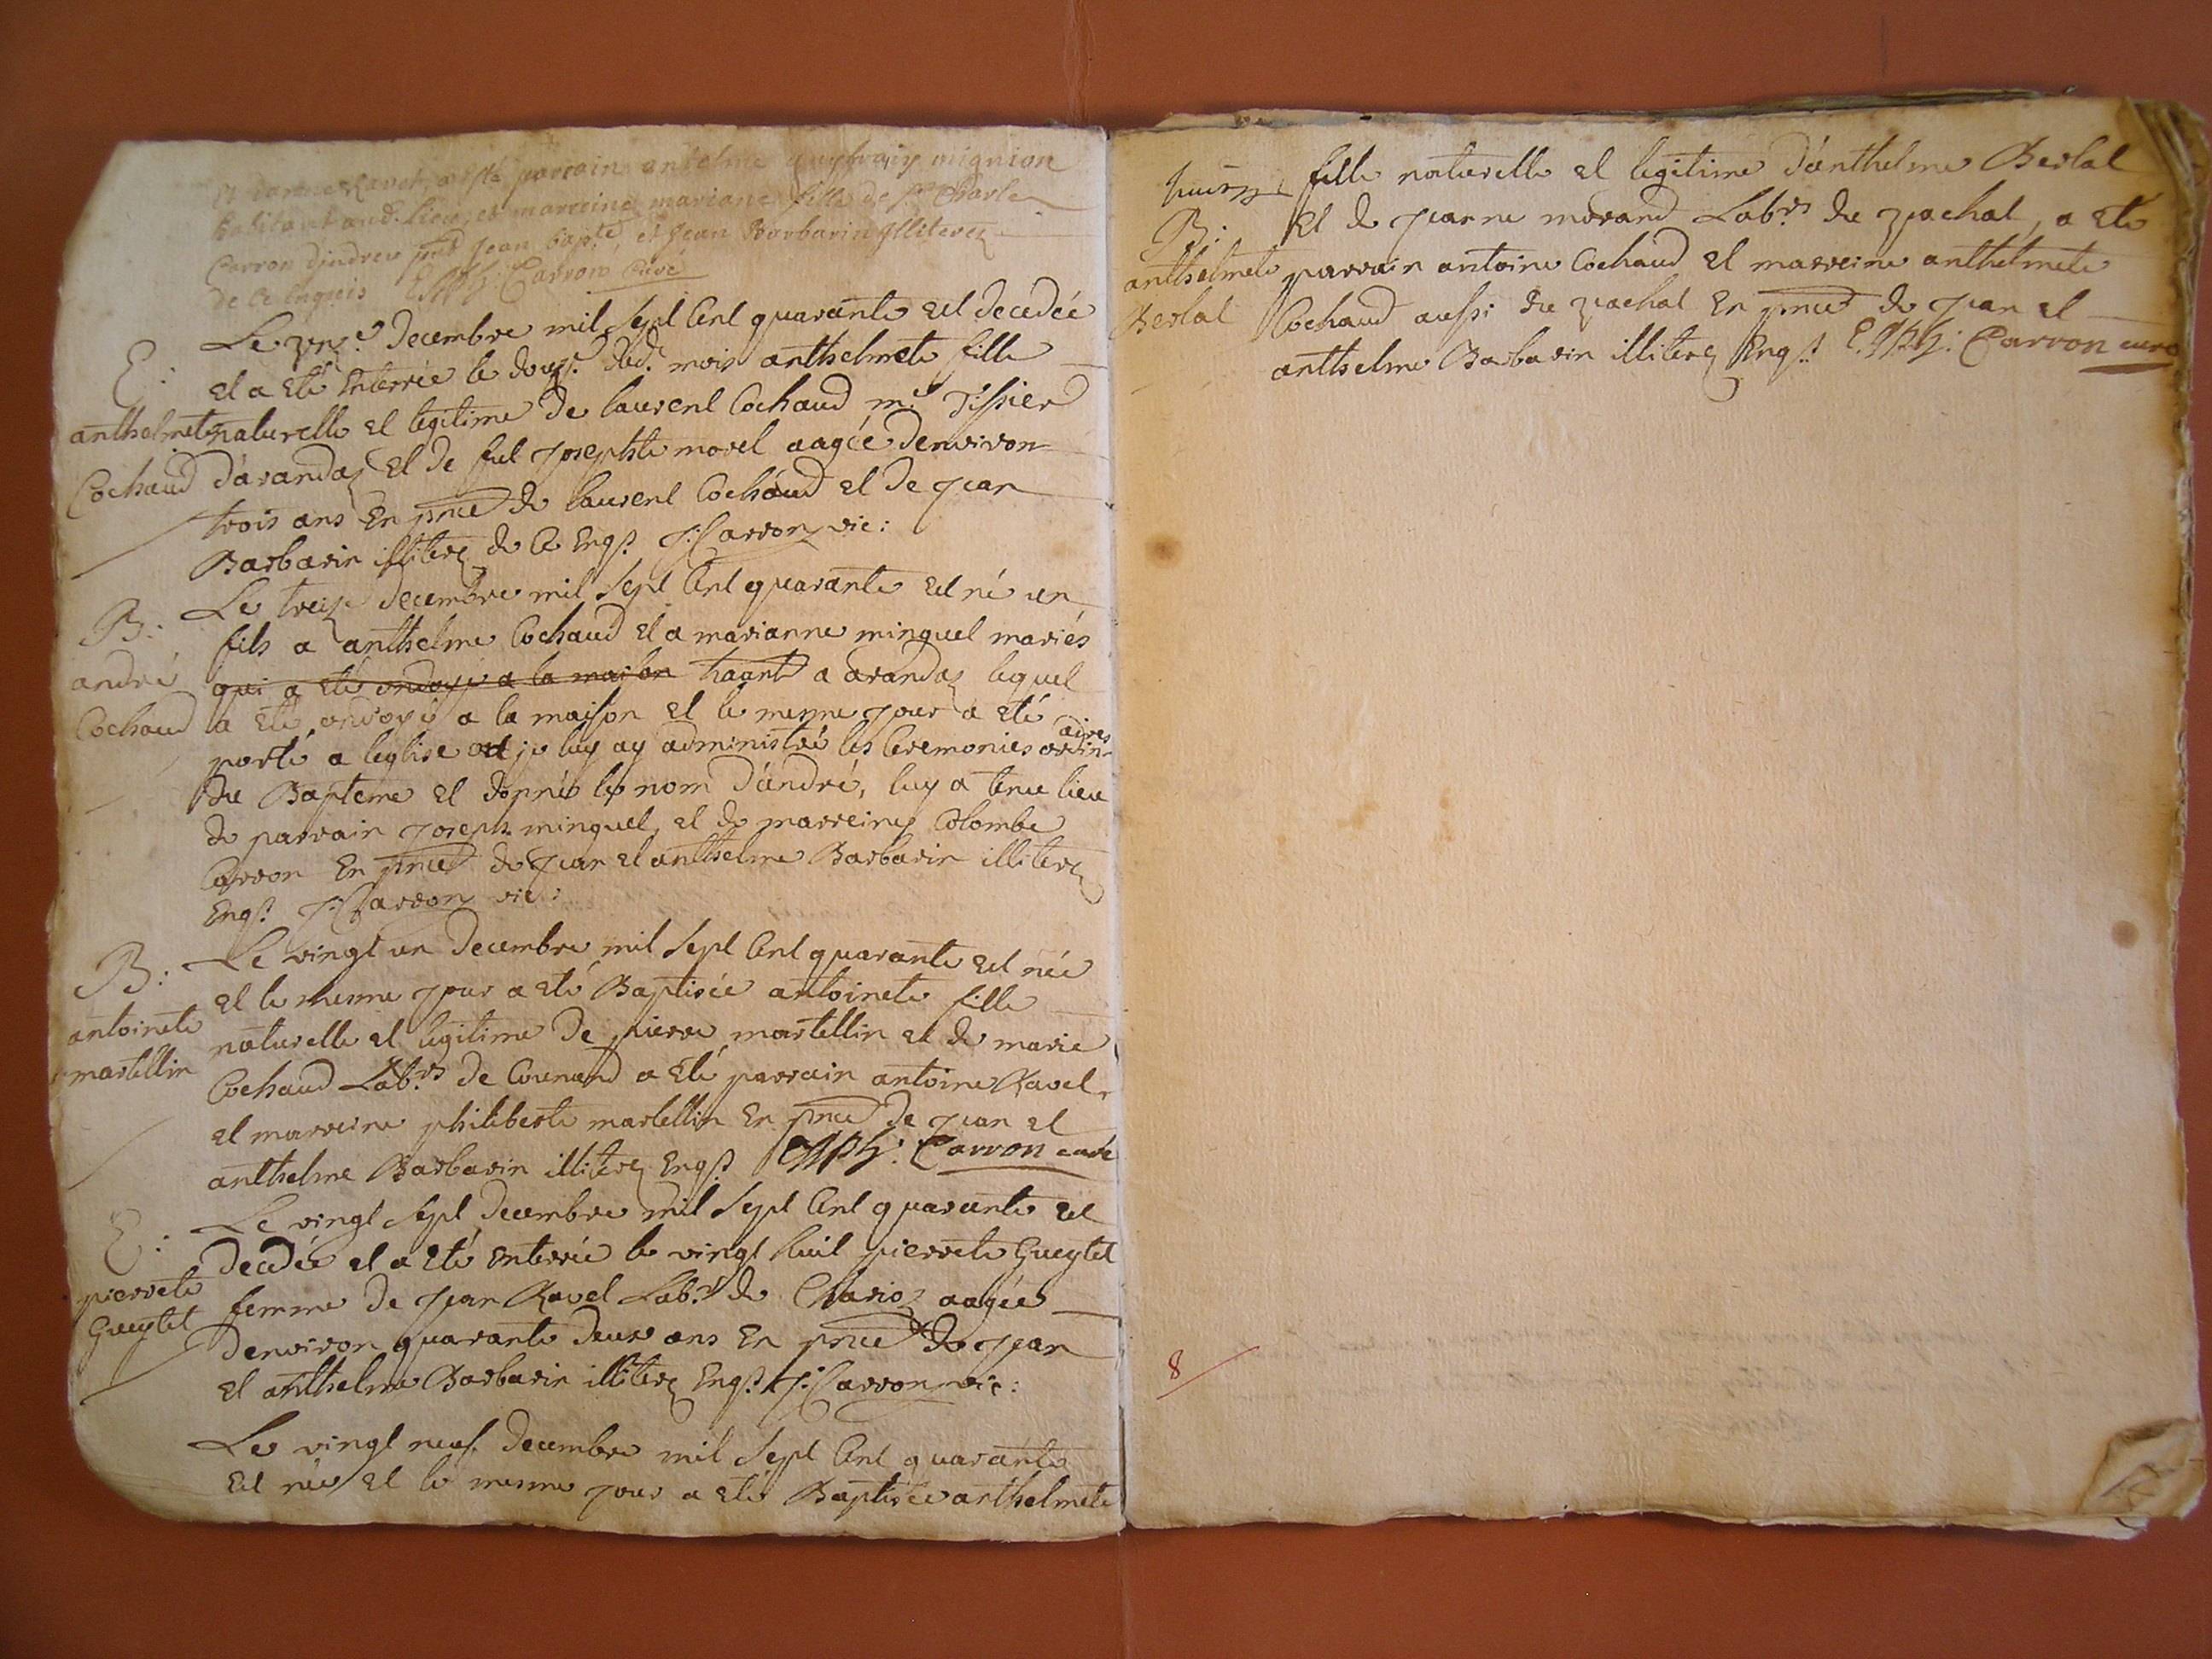 parrain antelme mignion
habitant aud. lieu, et marreine mariane fille de Sr Charle
Carron d'indreu pnt Jean bapte et Jean Barbarin Illiterez
de ce enquis Carron Curé
Le onze decembre mil Sept Cent quarante est decedée
E: et a eté Enterrée le douze dud. mois anthelmete fille
anthelmete naturelle et legitime de laurent Cochaud me Tissier
Cochaud d'arandaz et de fut Josephte morel aagée d'environ
trois ans En pnce de laurent Cochaud et de Jean
Barbarin illiterez de Ce Enqs J: Carron vic:
Le treize decembre mil Sept Cent quarante est né un
B: fils a anthelme Cochaud et a marianne minguet mariés
andré qui a eté ondoyé a la maison habts a arandaz lequel
Cochaud a eté ondoyé a la maison et le mesme jour a eté
porté a leglise ou je luy ay administré les Ceremonies ordinaires
du Bapteme et donné le nom d'andré, luy a tenu lieu
de parrain Joseph minguet, et de marreine Colombe
Carron En pnce de Jean et anthelme Barbarin illiterez
Enqs J: Carron vic:
B: Le vingt un decembre mil Sept Cent quarante est née
et le mesme jour a eté Baptisée antoinete fille
antoinete naturelle et legitime de pierre martellin et de marie
martellin Cochaud Labrs de Counand a eté parrain antoine Ravet
et marreine philiberte martellin En pnce de Jean et
anthelme Barbarin illiterez Enqs Carron curé
E: Le vingt Sept decembre mil Sept Cent quarante est
decedée et a eté enterrée le vingt huit pierrete Gueytet
pierrete femme de Jean Ravet Labr de Charioz aagée
Gueytet d'environ quarante deux ans En pnce de Jean
et anthelme Barbarin illiterez Enqs J: Carron vic:
Le vingt neuf decembre mil Sept Cent quarante
est née et le mesme jour a eté Baptisée anthelmete
fille naturelle et legitime d'anthelme Berlat
B: et de Jeanne morand Labrs du pachat, a eté
anthelmete parrain antoine Cochaud et marreine anthelmete
Berlat Cochaud aussi du pachat En pnce de Jean et
anthelme Barbarin illiterez Enqs Carron curé
8